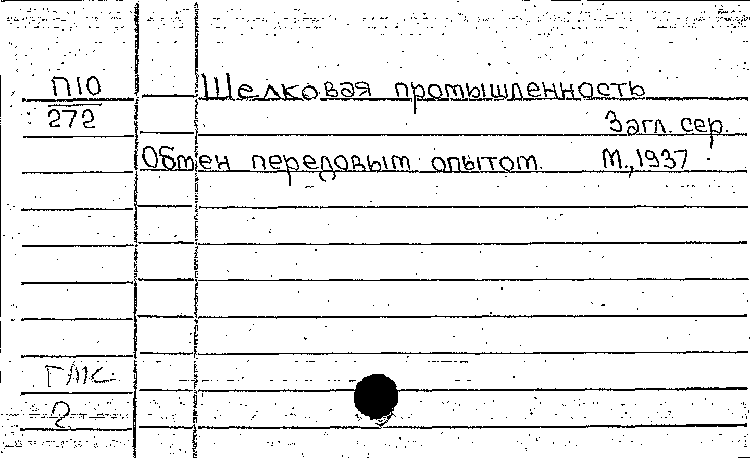 П10 Шелковая промышленность
272 Загл. сер.
Обмен передовым опытом. М.,1937
ГМС
2